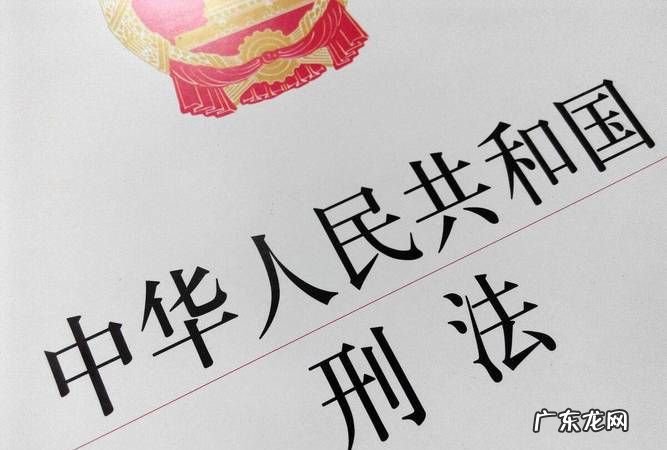 中华人民共和国
刑法
广东龙网